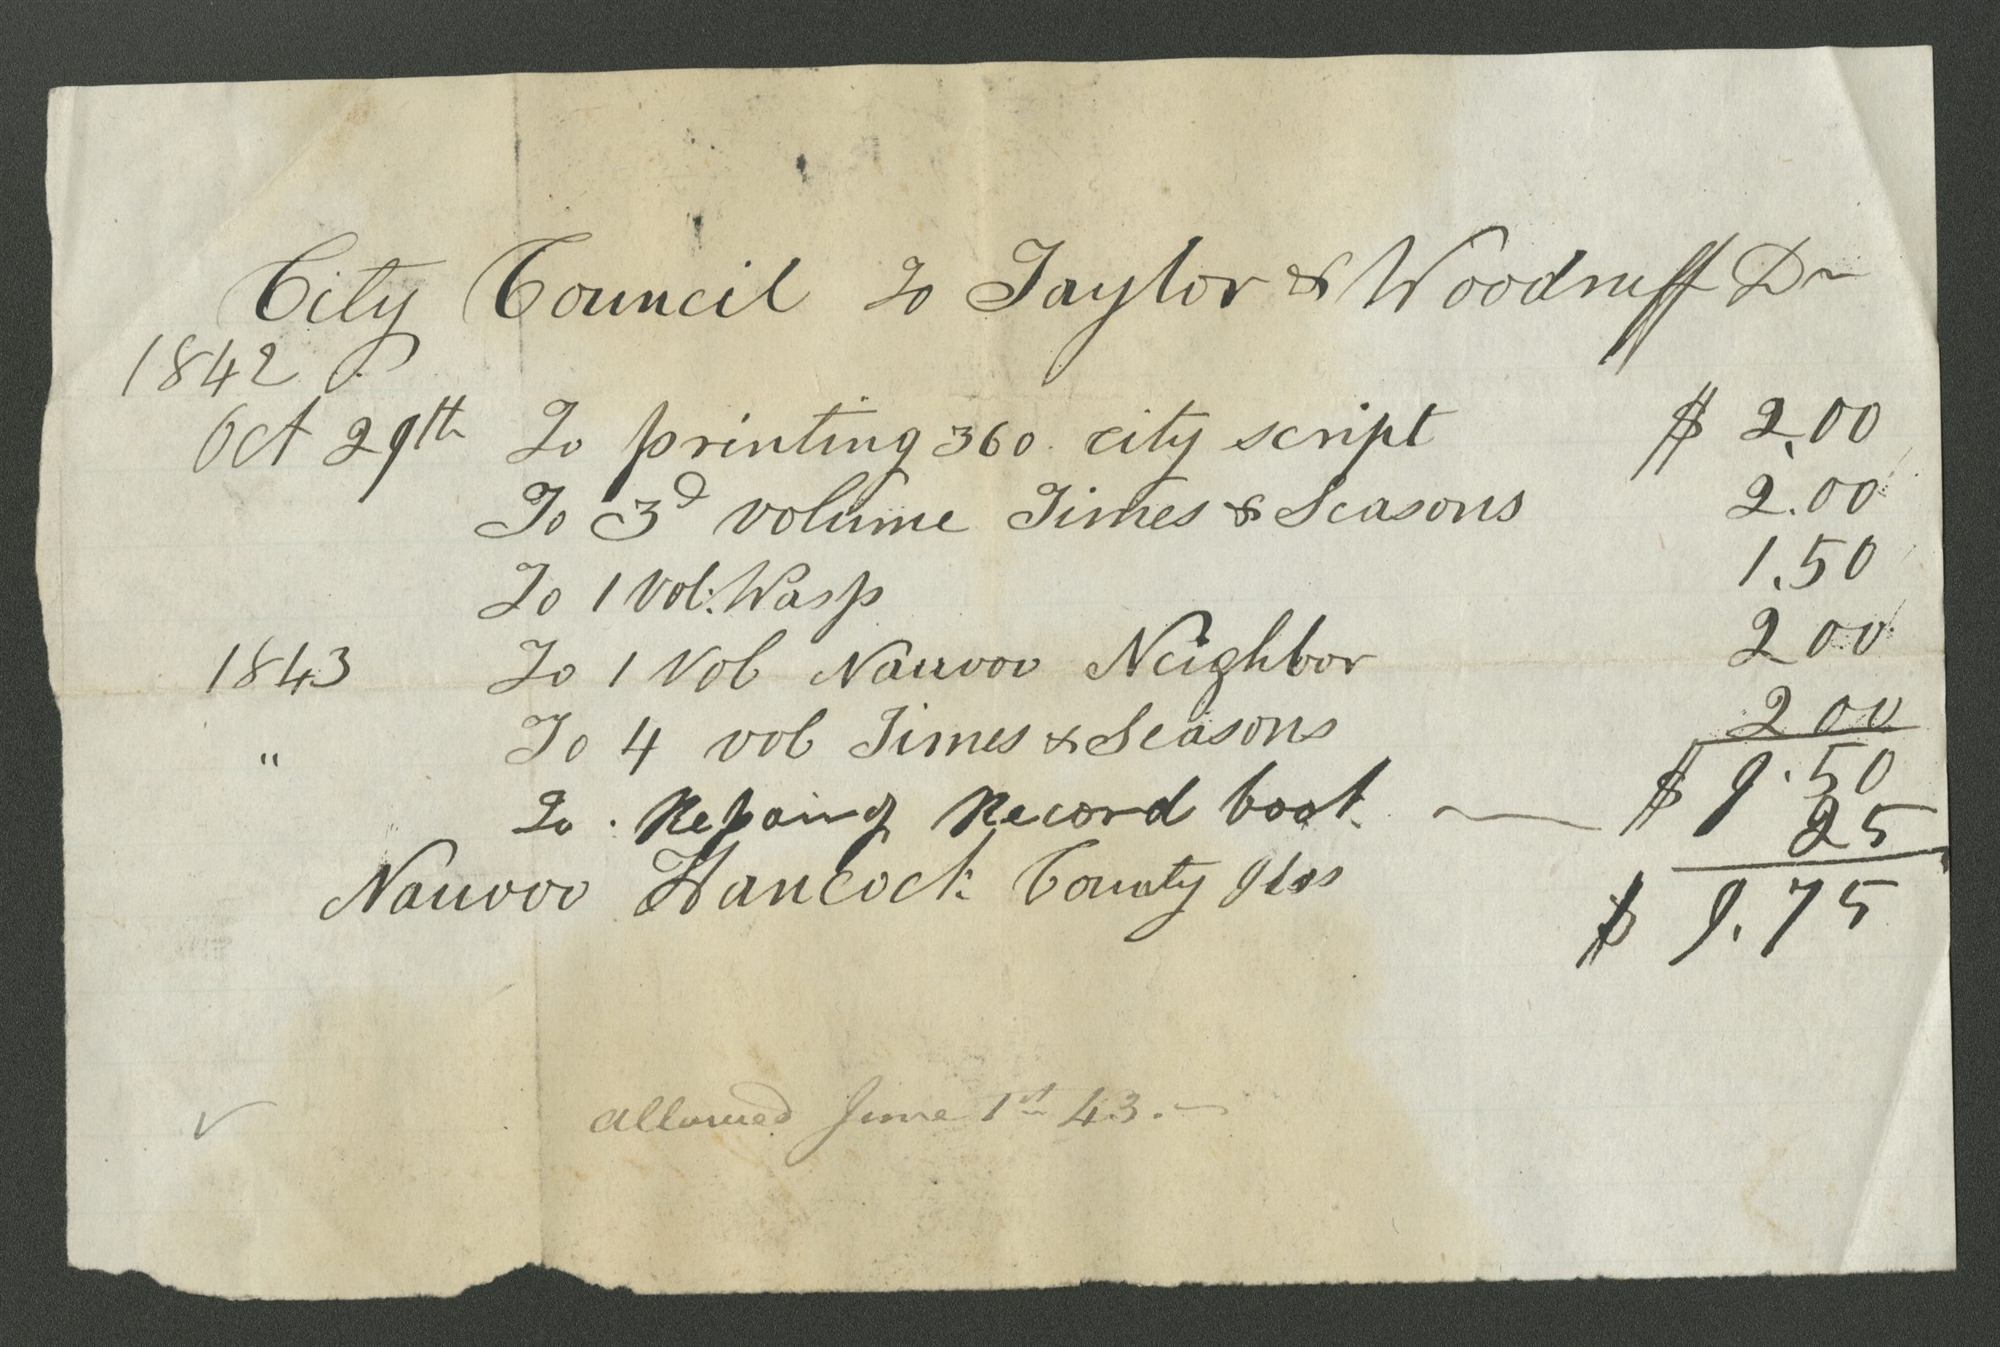 City Council To Taylor & Woodruff Dr
1842
Oct 29th To printing 360 city script $ 2.00
To 3d volume Times & Seasons 2.00
To 1 Vol. Wasp 1.50
1843 To 1 Vol Nauvoo Neighbor 2 00
" To 4 vol Times & Seasons 2 00
$ 9.50
To Repairing Record book 25
Nauvoo Hancock County Ills $ 9.75
allowed June 1st 43.